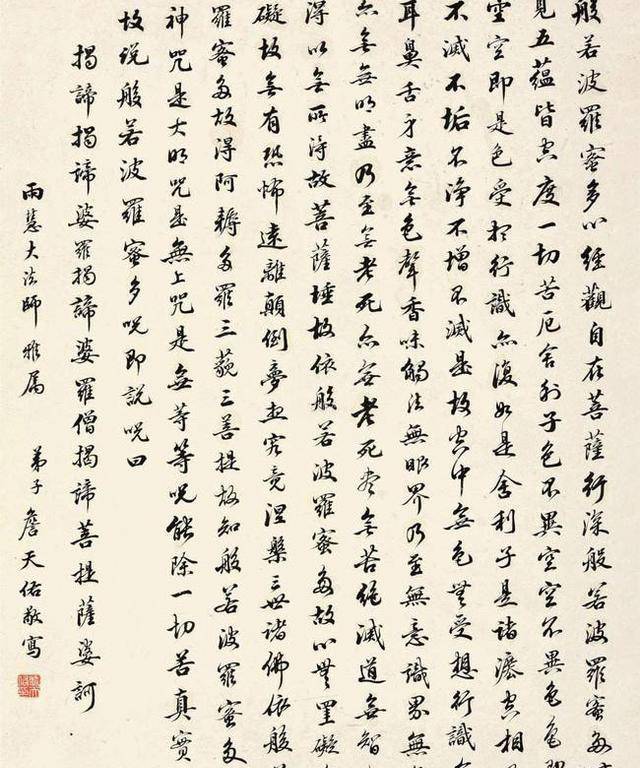 般若波羅蜜多心經觀自在菩薩行深般若波羅蜜多
見五蘊皆空度一切苦厄舍利子色不異空空不異色色即
空空即是色受想行識亦復如是舍利子是諸灋空相
不滅不垢不淨不增不減是故空中無色無受想行識
耳鼻舌身意無色聲香味觸法無眼界乃至無意識界無
亦無無明盡乃至無老死亦無老死盡無苦集滅道無智
得以無所得故菩薩埵故依般若波羅蜜多故心無罣礙
礙故無有恐怖遠離顛倒夢想究竟涅槃三世諸佛依般
羅蜜多故得阿耨多羅三藐三菩提故知般若波羅蜜多
神咒是大明咒是無上咒是無等等咒能除一切苦真實
故說般若波羅蜜多呪即說呪曰
揭諦揭諦婆羅揭諦婆羅僧揭諦菩提薩婆訶
雨慧大法師雅屬 弟子詹天佑敬寫